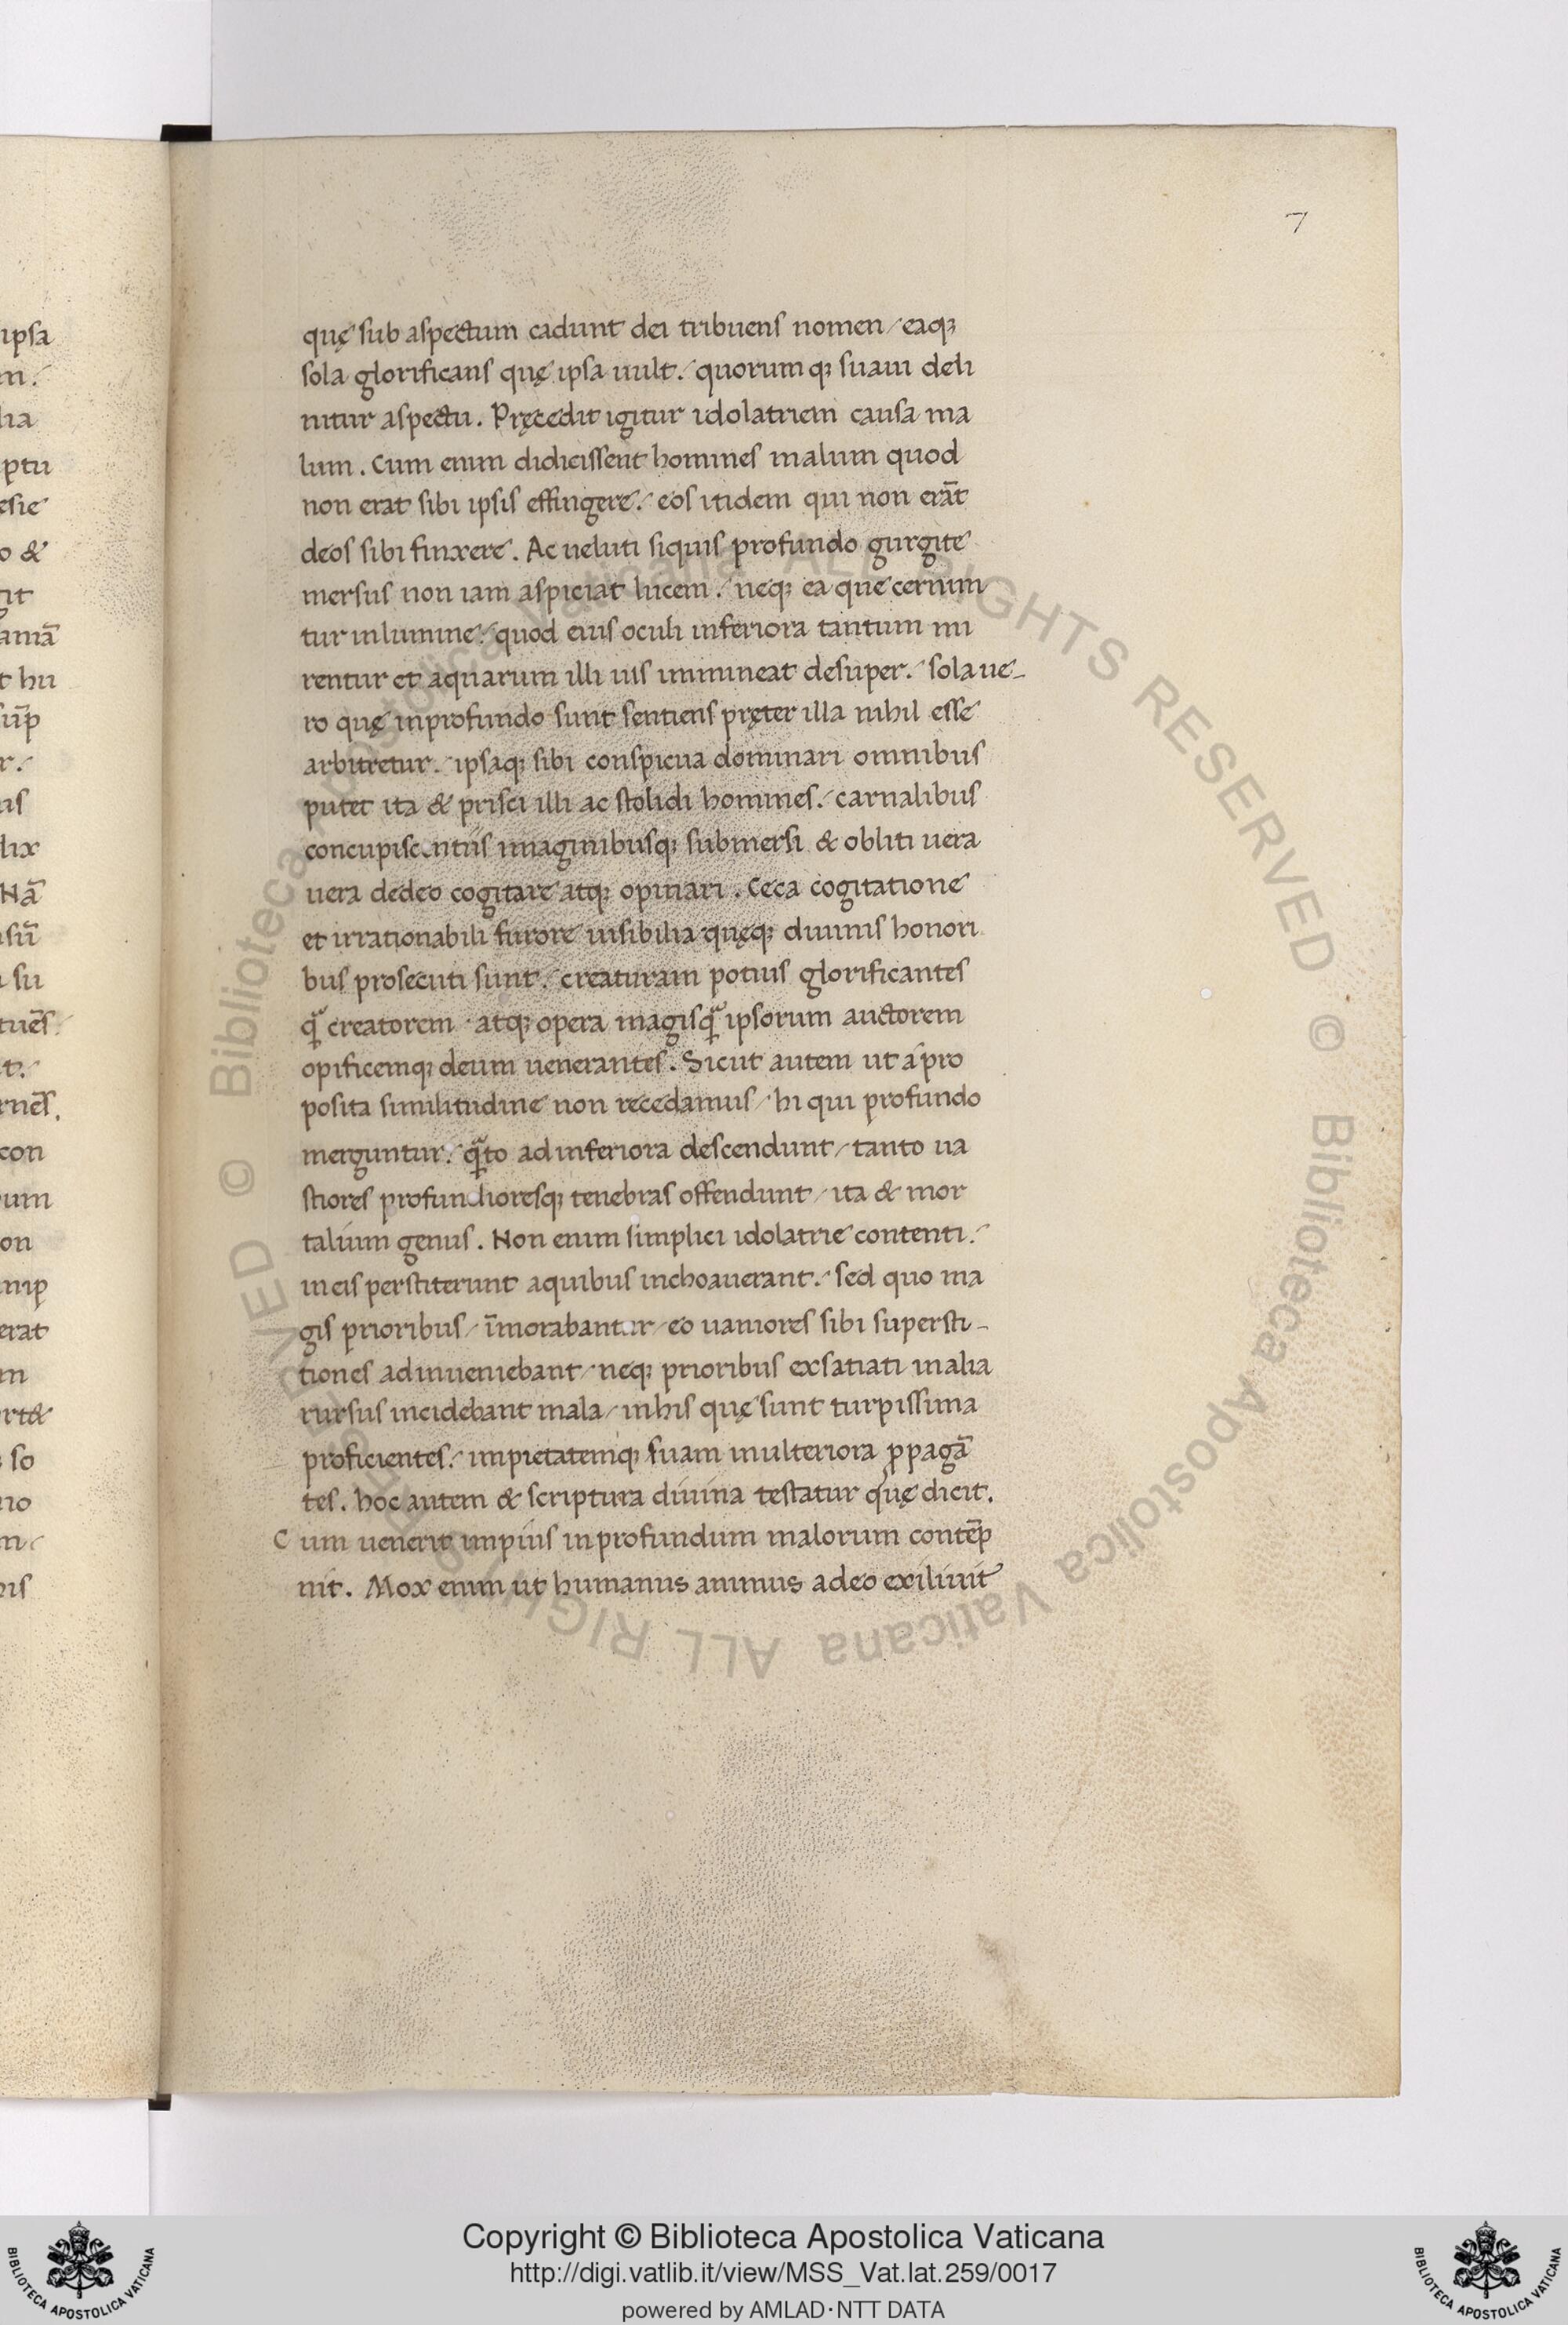 7
quę sub aspectum cadunt dei tribuens nomen / eaqꝫ
sola glorificans quę ipsa uult ./ quorumqꝫ suaui deli
nitur aspectu . Pręcedit igitur idolatriem causa ma
lum . Cum enim didicissent homines malum quod
non erat sibi ipsis effingere ./ eos itidem qui non erāt
deos sibi finxere . Ac ueluti siquis profundo gurgite
mersus non iam aspiciat lucem ./ neqꝫ ea que cernun
tur in lumine ./ quod eius oculi inferiora tantum mi
rentur et aquarum illi uis immineat desuper ./ sola ue-
ro quę inprofundo sunt sentiens pręter illa nihil esse
arbitretur ./ ipsaqꝫ sibi conspicua dominari omnibus
putet ita & prisci illi ac stolidi homines ./ carnalibus
concupiscentiis imaginibusqꝫ submersi & obliti uera
uera dedeo cogitare atqꝫ opinari . Ceca cogitatione
et irrationabili furore uisibilia quęqꝫ diuinis honori
bus prosecuti sunt ./ creaturam potius glorificantes
quā creatorem · atqꝫ opera magisquā ipsorum auctorem
opificemqꝫ deum uenerantes . Sicut autem ut a pro
posita similitudine non recedamus / hi qui profundo
merguntur ./ quāto ad inferiora descendunt / tanto ua
stiores profundioresqꝫ tenebras offendunt / ita & mor
talium genus . Non enim simplici idolatrie contenti ./
in eis perstiterunt aquibus inchoauerant ./ sed quo ma
gis prioribus / īmorabantur / eo uaniores sibi supersti-
tiones adinueniebant / neqꝫ prioribus exsatiati in alia
rursus incidebant mala / inhis quę sunt turpissima
proficientes ./ impietatemqꝫ suam inulteriora ꝓpagā
tes . hoc autem & scriptura diuina testatur quę dicit .
Cum uenerit impius inprofundum malorum contēp
nit . Mox enim ut humanus animus a deo exiliuit
Copyright © Biblioteca Apostolica Vaticana
http://digi.vatlib.it/view/MSS_Vat.lat.259/0017
powered by AMLAD·NTT DATA